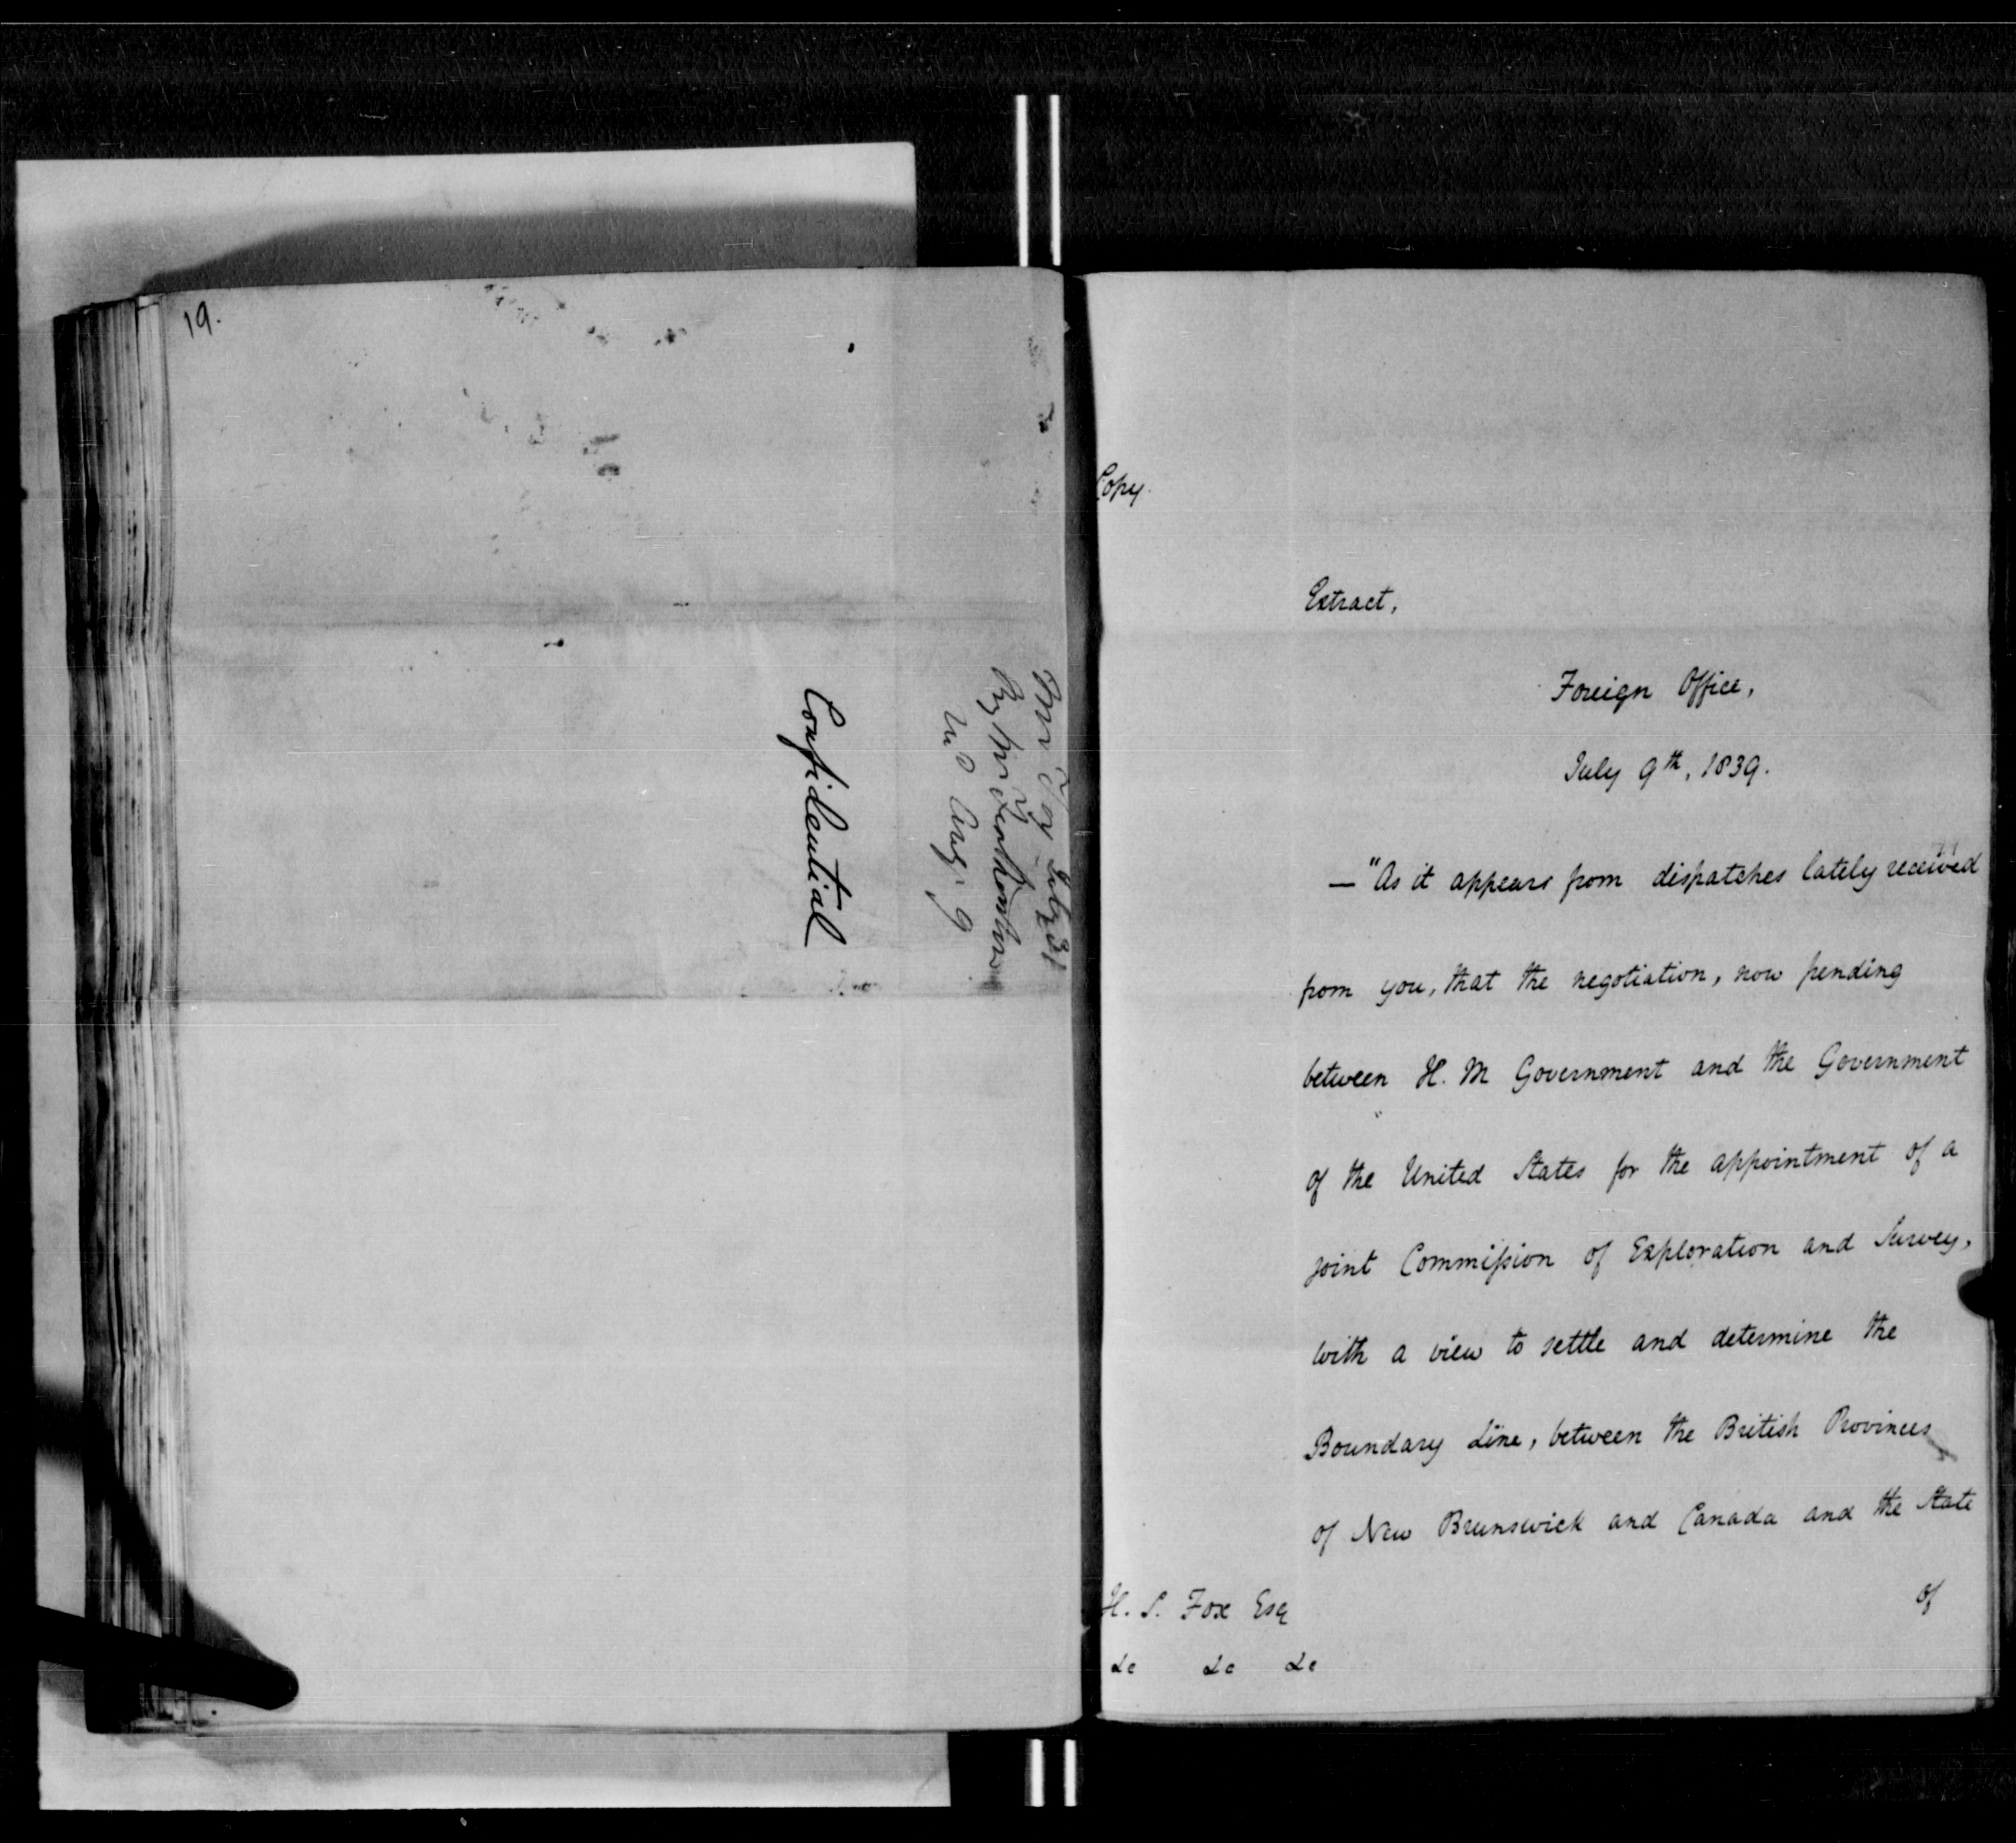 19.
Mr Fox July 31
By Mr Featherston
Confidential
Copy.
Extract,
Foreign Office,
July 9th, 1839.
— "As it appears from dispatches lately received
from you, that the negotiation, now pending
between H. M Government and the Government
of the United States for the appointment of a
joint Commission of Exploration and Survey,
with a view to settle and determine the
Boundary Line, between the British Provinces
of New Brunswick and Canada and the State
of
H. S. Fox Esq
&c &c &c